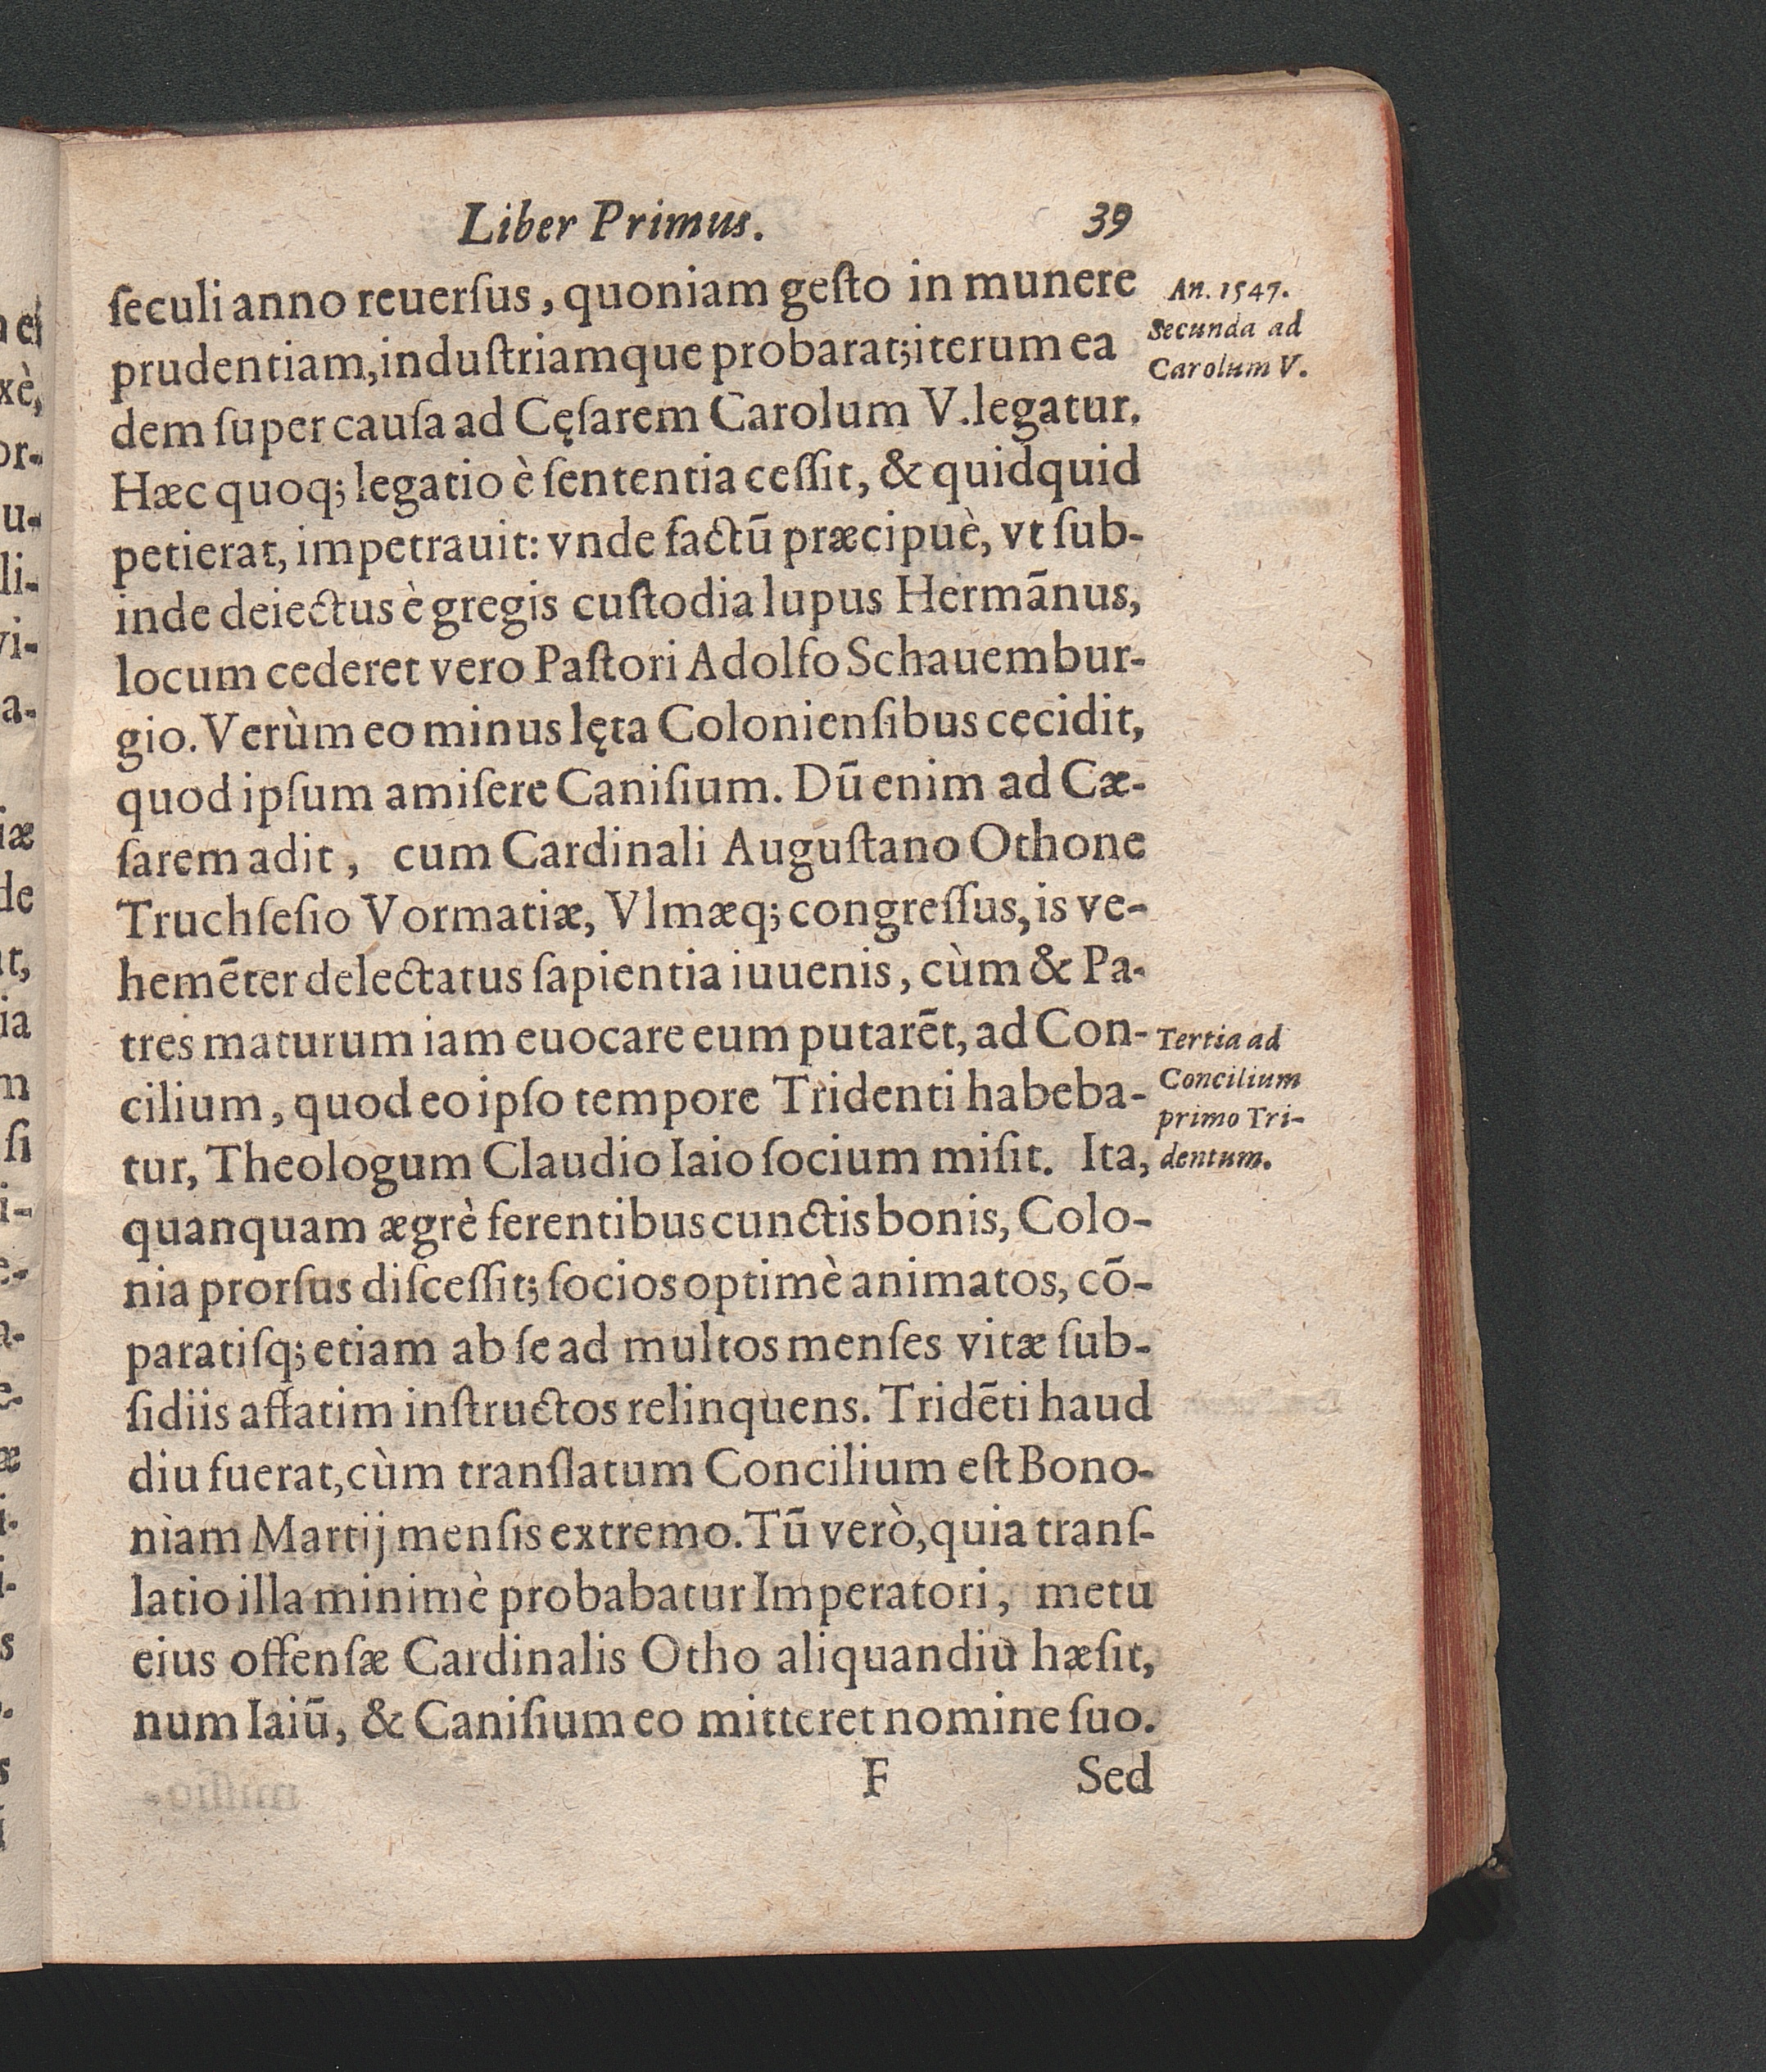 Liber Primus. 39
ſeculi anno reuerſus, quoniam geſto in munere
prudentiam, induſtriamque probarat; iterum ea
dem ſuper cauſa ad Cęſarem Carolum V. legatur.
Hæc quoq; legatio è ſententia ceſſit, & quidquid
petierat, impetrauit: vnde factū præcipuè, vt ſub-
inde deiectus è gregis cuſtodia lupus Hermānus,
locum cederet vero Paſtori Adolfo Schauembur-
gio. Verùm eo minus lęta Colonienſibus cecidit,
quod ipſum amiſere Caniſium. Dū enim ad Cæ-
ſarem adit, cum Cardinali Auguſtano Othone
Truchſeſio Vormatiæ, Vlmæq; congreſſus, is ve-
hemēter delectatus ſapientia iuuenis, cùm & Pa-
tres maturum iam euocare eum putarēt, ad Con-
cilium, quod eo ipſo tempore Tridenti habeba-
tur, Theologum Claudio Iaio ſocium miſit. Ita,
quanquam ægrè ferentibus cunctis bonis, Colo-
nia prorſus diſceſſit; ſocios optimè animatos, cō-
paratiſq; etiam ab ſe ad multos menſes vitæ ſub-
ſidiis affatim inſtructos relinquens. Tridēti haud
diu fuerat, cùm tranſlatum Concilium eſt Bono-
niam Martij menſis extremo. Tū verò, quia tranſ-
latio illa minimè probabatur Imperatori, metu
eius offenſæ Cardinalis Otho aliquandiu hæſit,
num Iaiū, & Caniſium eo mitteret nomine ſuo.
F Sed
An. 1547.
Secunda ad
Carolum V.
Tertia ad
Concilium
primo Tri-
dentum.